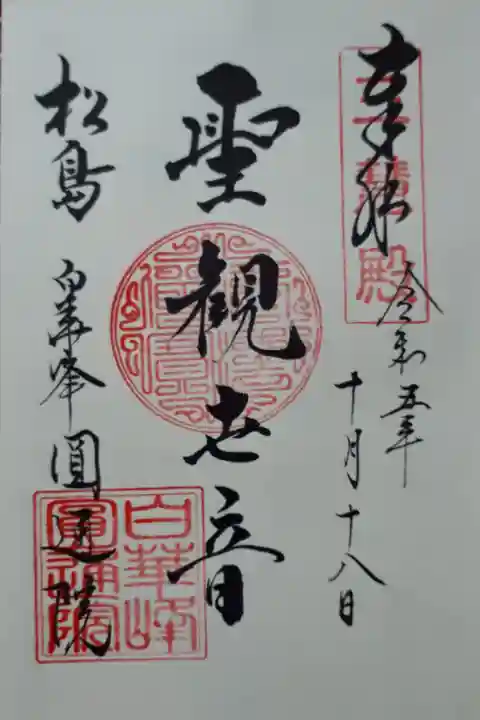 奉拝
三慧殿
令和五年
十月十八日
聖観世音
松島 白華峯 圓通院
白華峰
圓通院